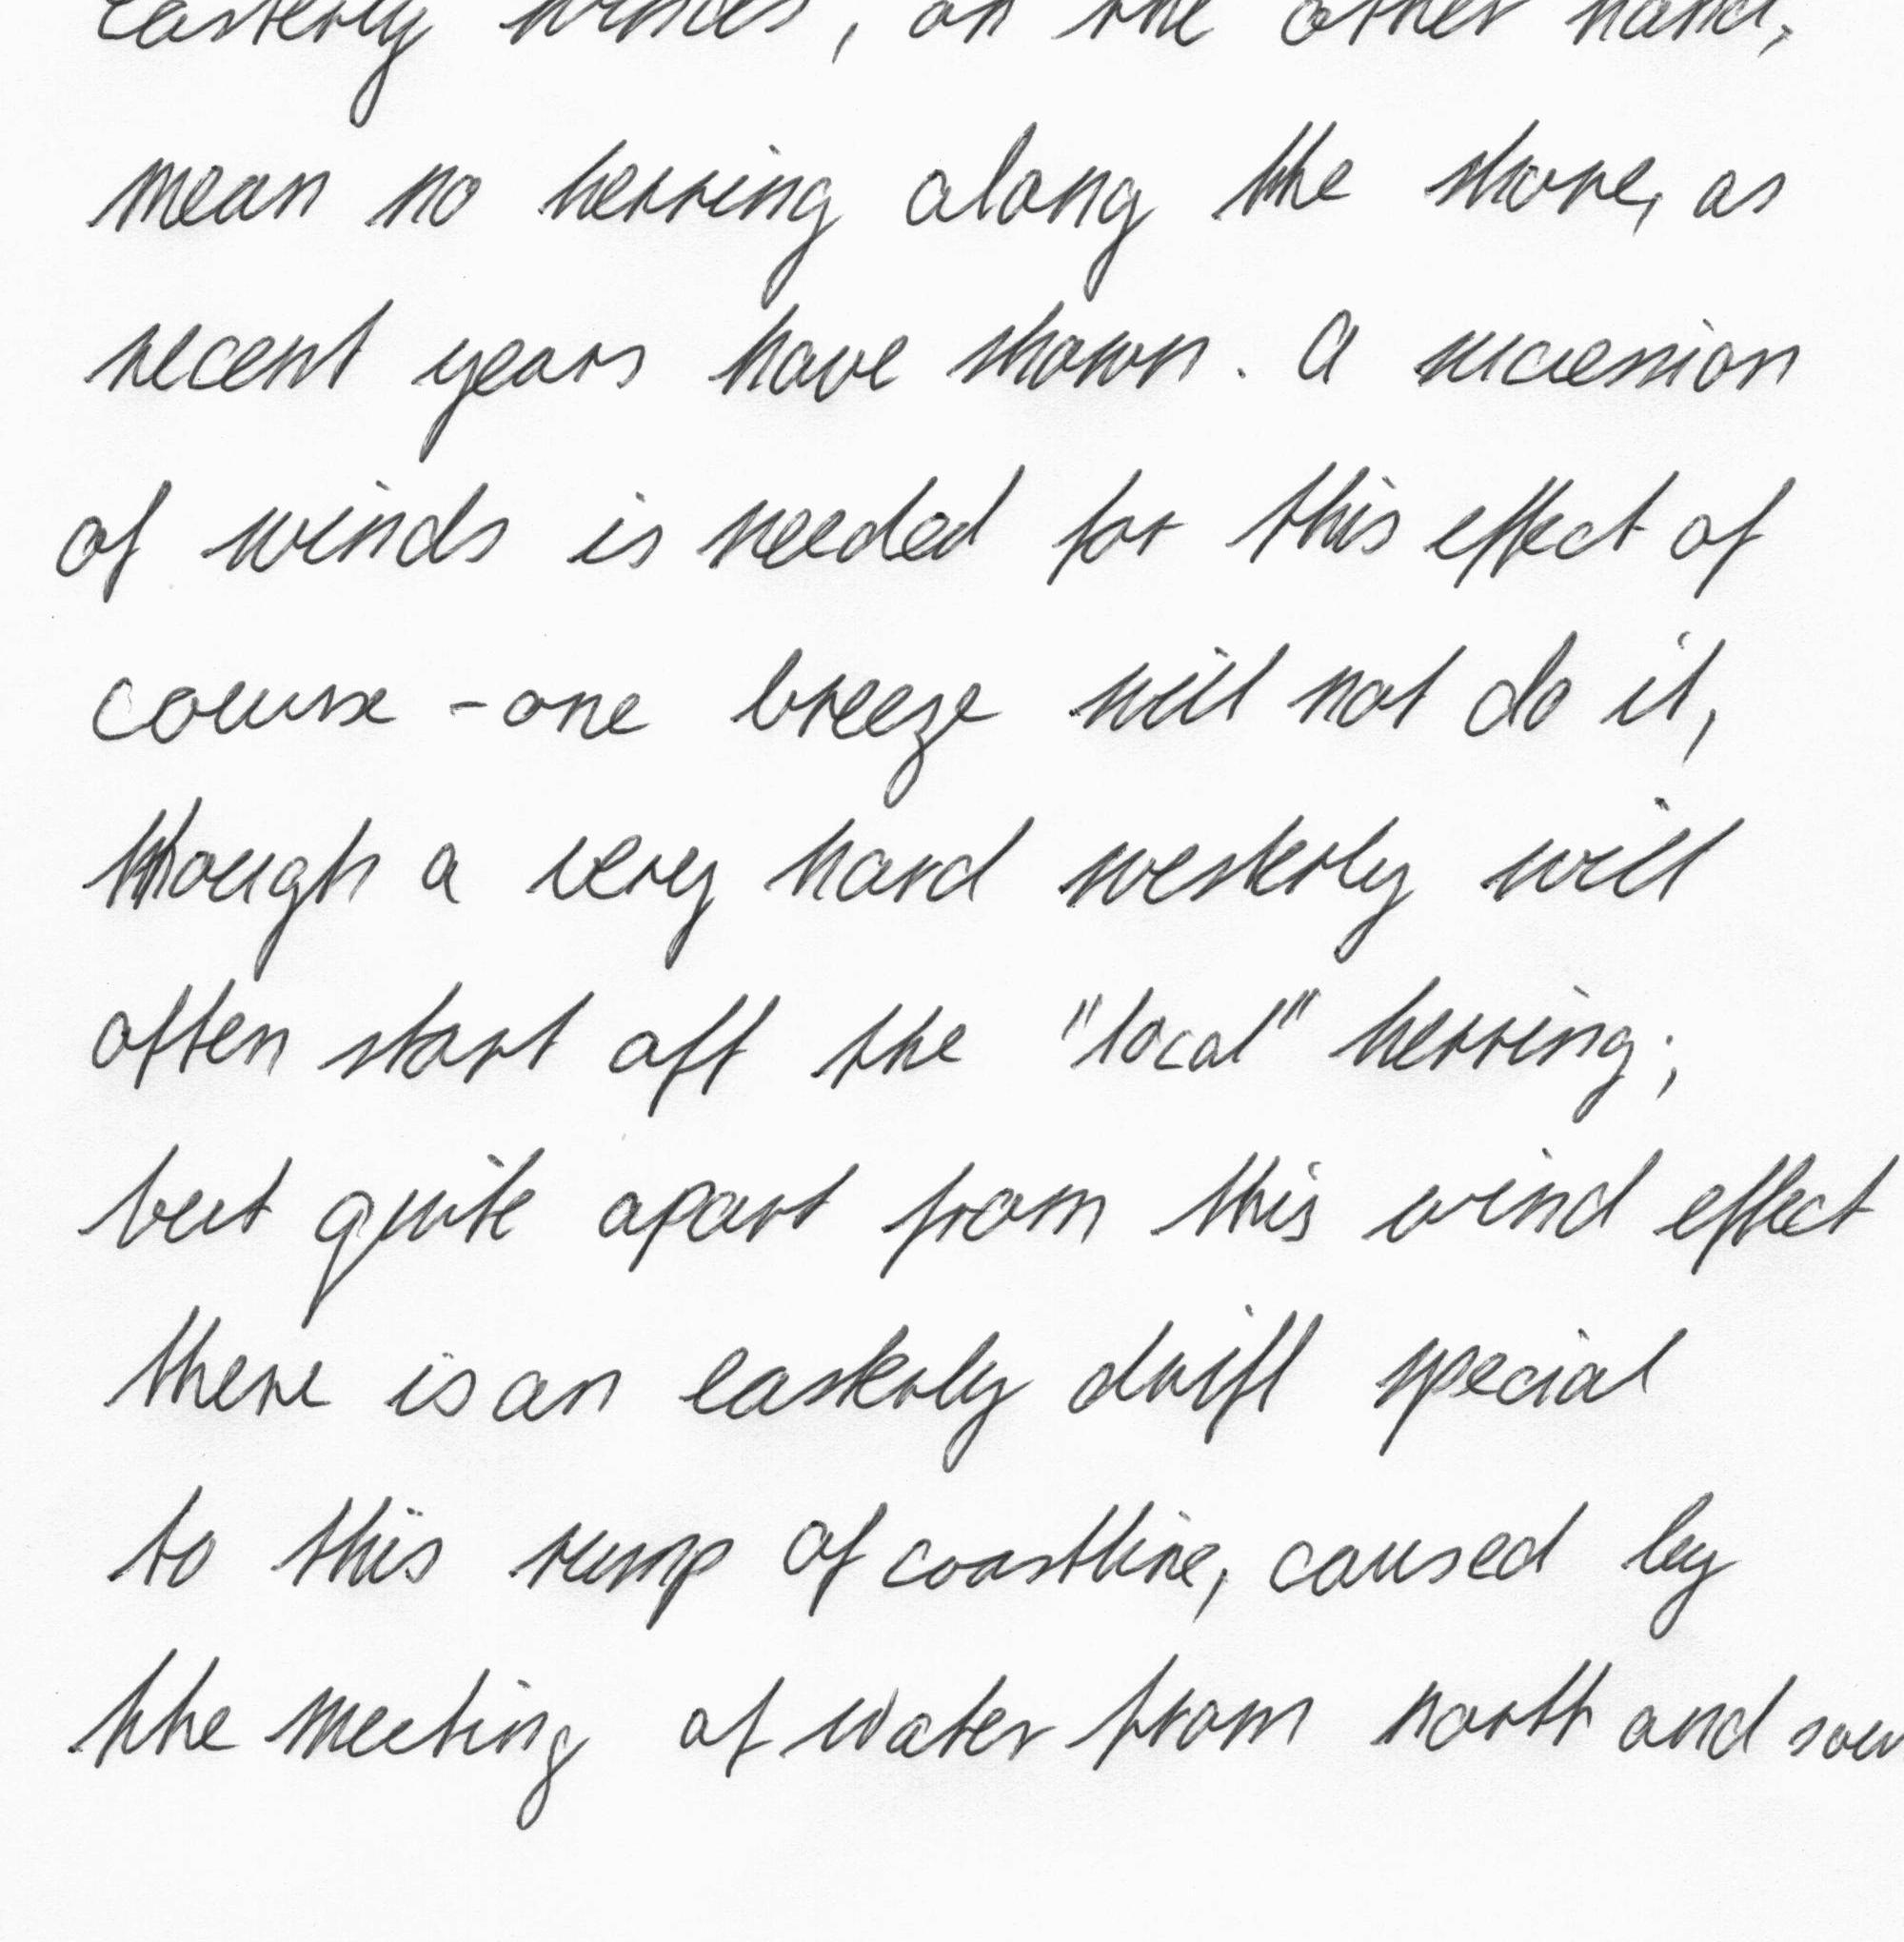 easterly winds, on the other hand,
mean no herring along the shore, as
recent years have shown. A succession
of winds is needed for this effect of
course - one breeze will not do it,
though a very hard westerly will
often start off the "local" herring;
but quite apart from this wind effect
there is an easterly drift special
to this rump of coastline, caused by
the meeting of water from north and sou